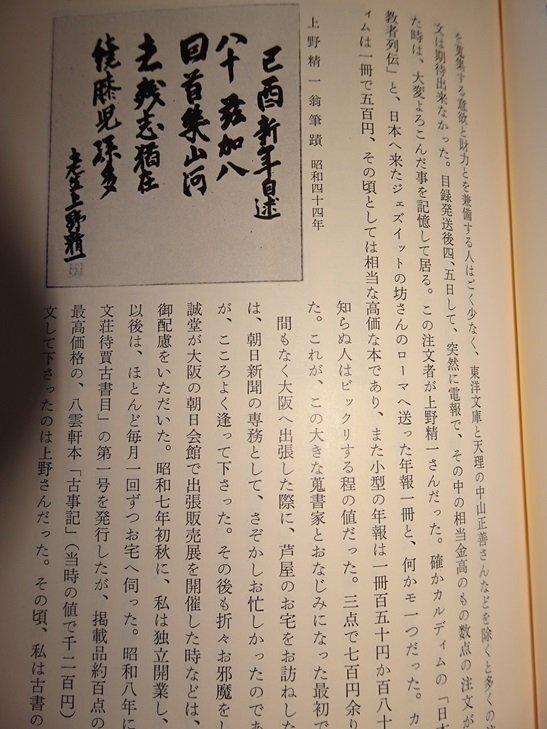 を蒐集する意欲と財力とを兼備する人はごく少なく、東洋文庫と天理の中山正善さんなどを除くと多くの注
文は期待出来なかった。目録発送後四、五日して、突然に電報で、その中の相当金高のもの数点の注文が
た時は、大変よろこんだ事を記憶して居る。この注文者が上野精一さんだった。確かカルディムの「日本
教者列伝」と、日本へ来たジェズイットの坊さんのローマへ送った年報一冊と、何かモ一つだった。カ
ィムは一冊で五百円、その頃としては相当な高価な本であり、また小型の年報は一冊百五十円か百八十
知らぬ人はビックリする程の値だった。三点で七百円余り
た。これが、この大きな蒐書家とおなじみになった最初で
間もなく大阪へ出張した際に、芦屋のお宅をお訪ねした
は、朝日新聞の専務として、さぞかしお忙しかったのであ
が、こころよく逢って下さった。その後も折々お邪魔をし
誠堂が大阪の朝日会館で出張販売展を開催した時などは、
御配慮をいただいた。昭和七年初秋に、私は独立開業し、
以後は、ほとんど毎月一回ずつお宅へ伺った。昭和八年に
文荘待賈古書目」の第一号を発行したが、掲載品約百点の
最高価格の、八雲軒本「古事記」（当時の値で千二百円）
文して下さったのは上野さんだった。その頃、私は古書の
上野精一翁筆蹟 昭和四十四年
己酉新年自述
八十茲加八
回首樂山河
志猶在
繞膝児孫多
上野精一